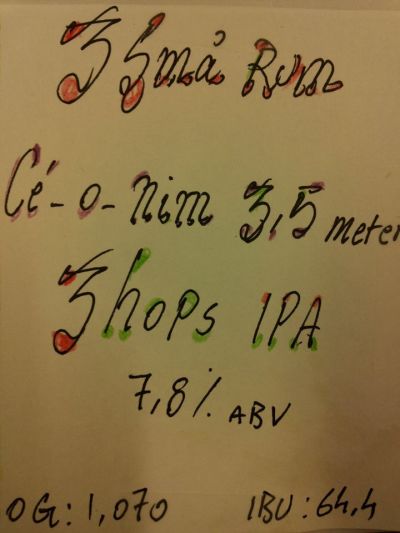 3 Små Rum
Cé-o-nim 3,5 meter
3 hops IPA
7,8% ABV
OG: 1,070 IBU: 64,4